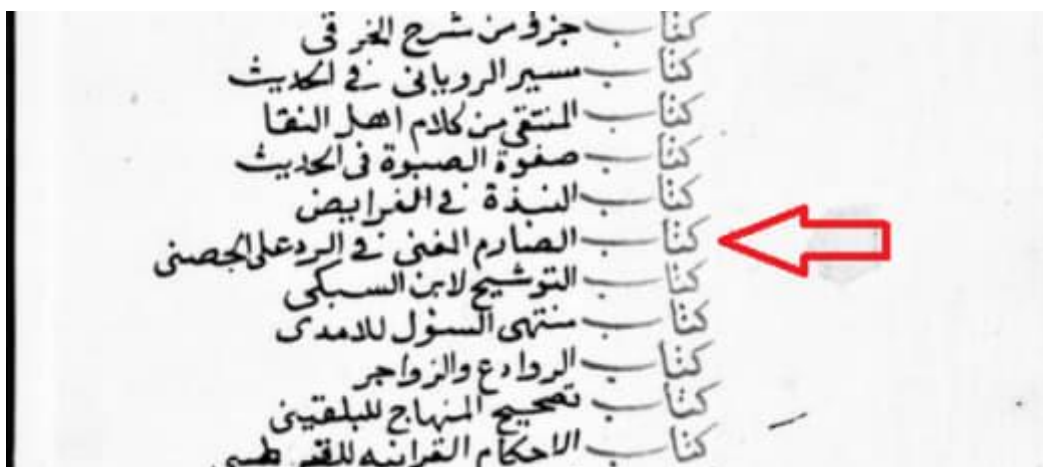 كتاب جزؤ من شرح الخرقى
كتاب سير الرويانى فى الحديث
كتاب المنتقى من كلام اهل النقا
كتاب صفوة الصبوة فى الحديث
كتاب النبذة فى الفرايض
كتاب الصارم المغنى فى الرد على الحصنى
كتاب التوشيح لابن السبكى
كتاب منتهى السول للامدى
كتاب الروادع والزواجر
كتاب تصحيح المنهاج للبلقينى
كتاب الاحكام القرانيه